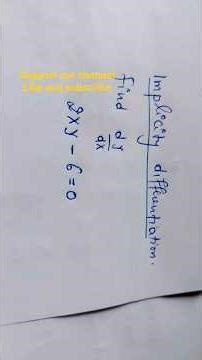 Implicity differentiation.
find dy/dx
2xy - 6 = 0
Support our channel
Like and subscribe